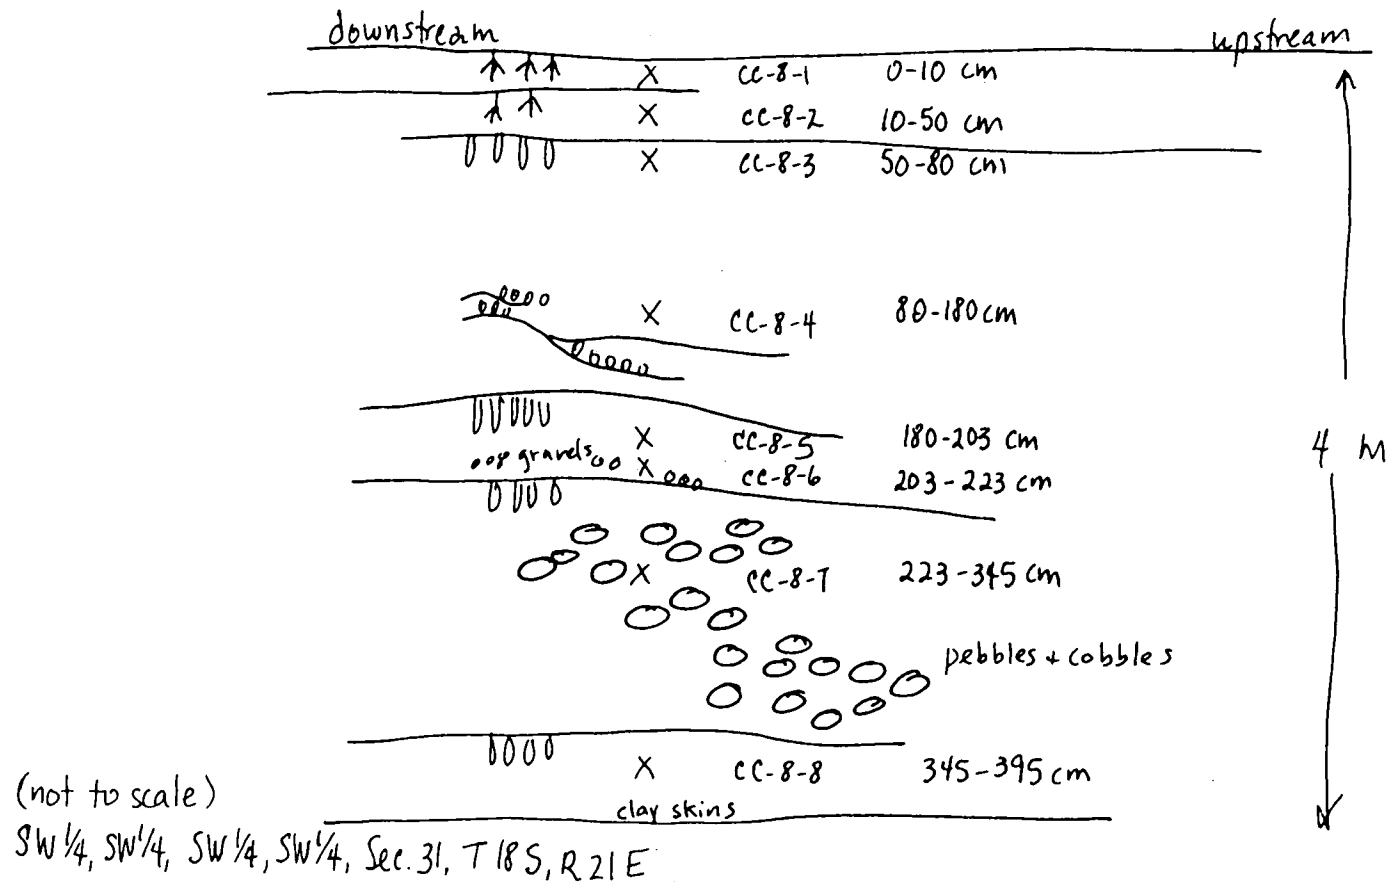 downstream upstream
X CC-8-1 0-10 cm
X CC-8-2 10-50 cm
X CC-8-3 50-80 cm
X CC-8-4 80-180cm
X CC-8-5 180-203 cm
4 m
gravels X CC-8-6 203-223 cm
X CC-8-7 223-345 cm
pebbles + cobbles
X CC-8-8 345-395 cm
(not to scale)
clay skins
SW 1/4, SW 1/4, SW 1/4, SW 1/4, Sec. 31, T 18 S, R 21 E